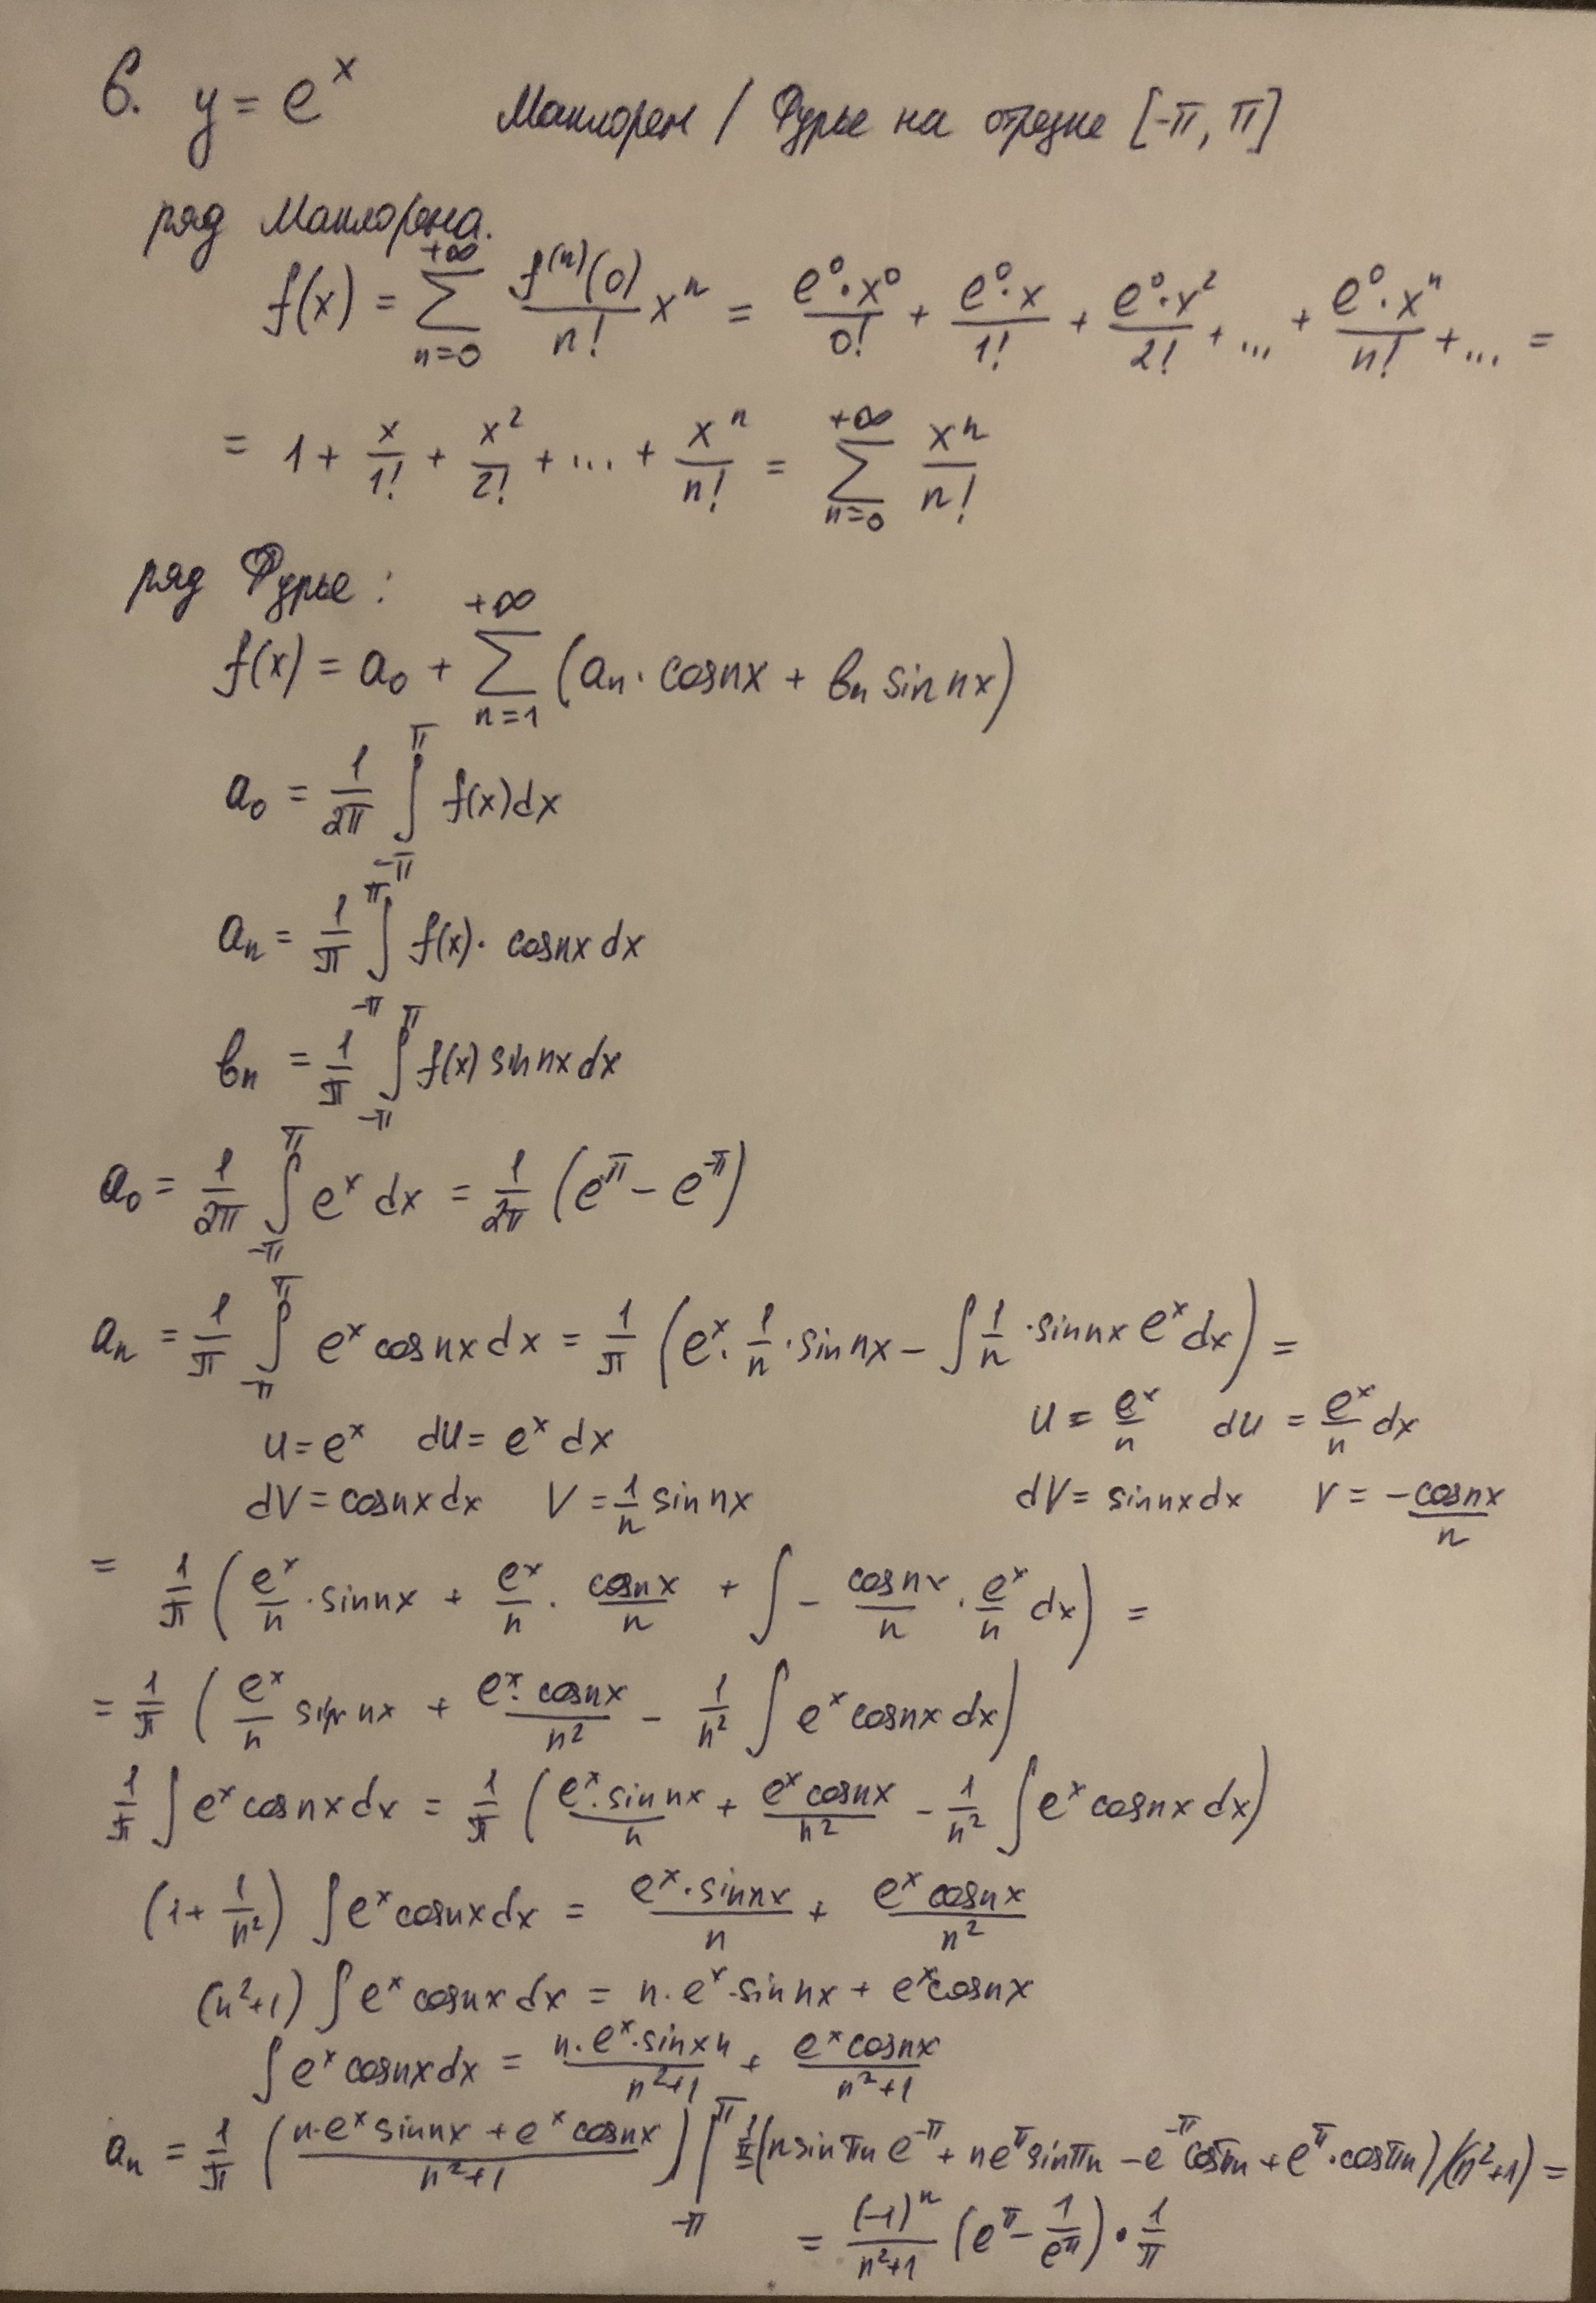 6. y = e^x Маклорен / Фурье на отрезке [-π, π]
ряд Маклорена.
f(x) = ∑_{n=0}^{+∞} f^(n)(0)/n! x^n = e^0·x^0/0! + e^0·x/1! + e^0·x^2/2! + ... + e^0·x^n/n! + ... =
= 1 + x/1! + x^2/2! + ... + x^n/n! = ∑_{n=0}^{+∞} x^n/n!
ряд Фурье:
f(x) = a_0 + ∑_{n=1}^{+∞} (a_n · cos nx + b_n sin nx)
a_0 = 1/2π ∫_{-π}^{π} f(x)dx
a_n = 1/π ∫_{-π}^{π} f(x)· cos nx dx
b_n = 1/π ∫_{-π}^{π} f(x) sin nx dx
a_0 = 1/2π ∫_{-π}^{π} e^x dx = 1/2π (e^π - e^{-π})
a_n = 1/π ∫_{-π}^{π} e^x cos nx dx = 1/π (e^x · 1/n · sin nx - ∫ 1/n · sin nx e^x dx) =
u = e^x du = e^x dx u = e^x/n du = e^x/n dx
dV = cos nx dx V = 1/n sin nx dV = sin nx dx V = - cos nx/n
= 1/π (e^x/n · sin nx + e^x/n · cos nx/n + ∫ - cos nx/n · e^x/n dx) =
= 1/π (e^x/n sin nx + e^x · cos nx/n^2 - 1/n^2 ∫ e^x cos nx dx)
1/π ∫ e^x cos nx dx = 1/π (e^x · sin nx/n + e^x cos nx/n^2 - 1/n^2 ∫ e^x cos nx dx)
(1 + 1/n^2) ∫ e^x cos nx dx = e^x · sin nx/n + e^x cos nx/n^2
(n^2+1) ∫ e^x cos nx dx = n · e^x · sin nx + e^x cos nx
∫ e^x cos nx dx = n · e^x · sin xn/n^2+1 + e^x cos nx/n^2+1
a_n = 1/π (n·e^x sin nx + e^x cos nx/n^2+1) |_{-π}^{π} = 1/π (n sin πn e^{-π} + n e^π sin πn - e^{-π} cos πn + e^π · cos πn)/(n^2+1) =
= (-1)^n/n^2+1 (e^π - 1/e^π) · 1/π